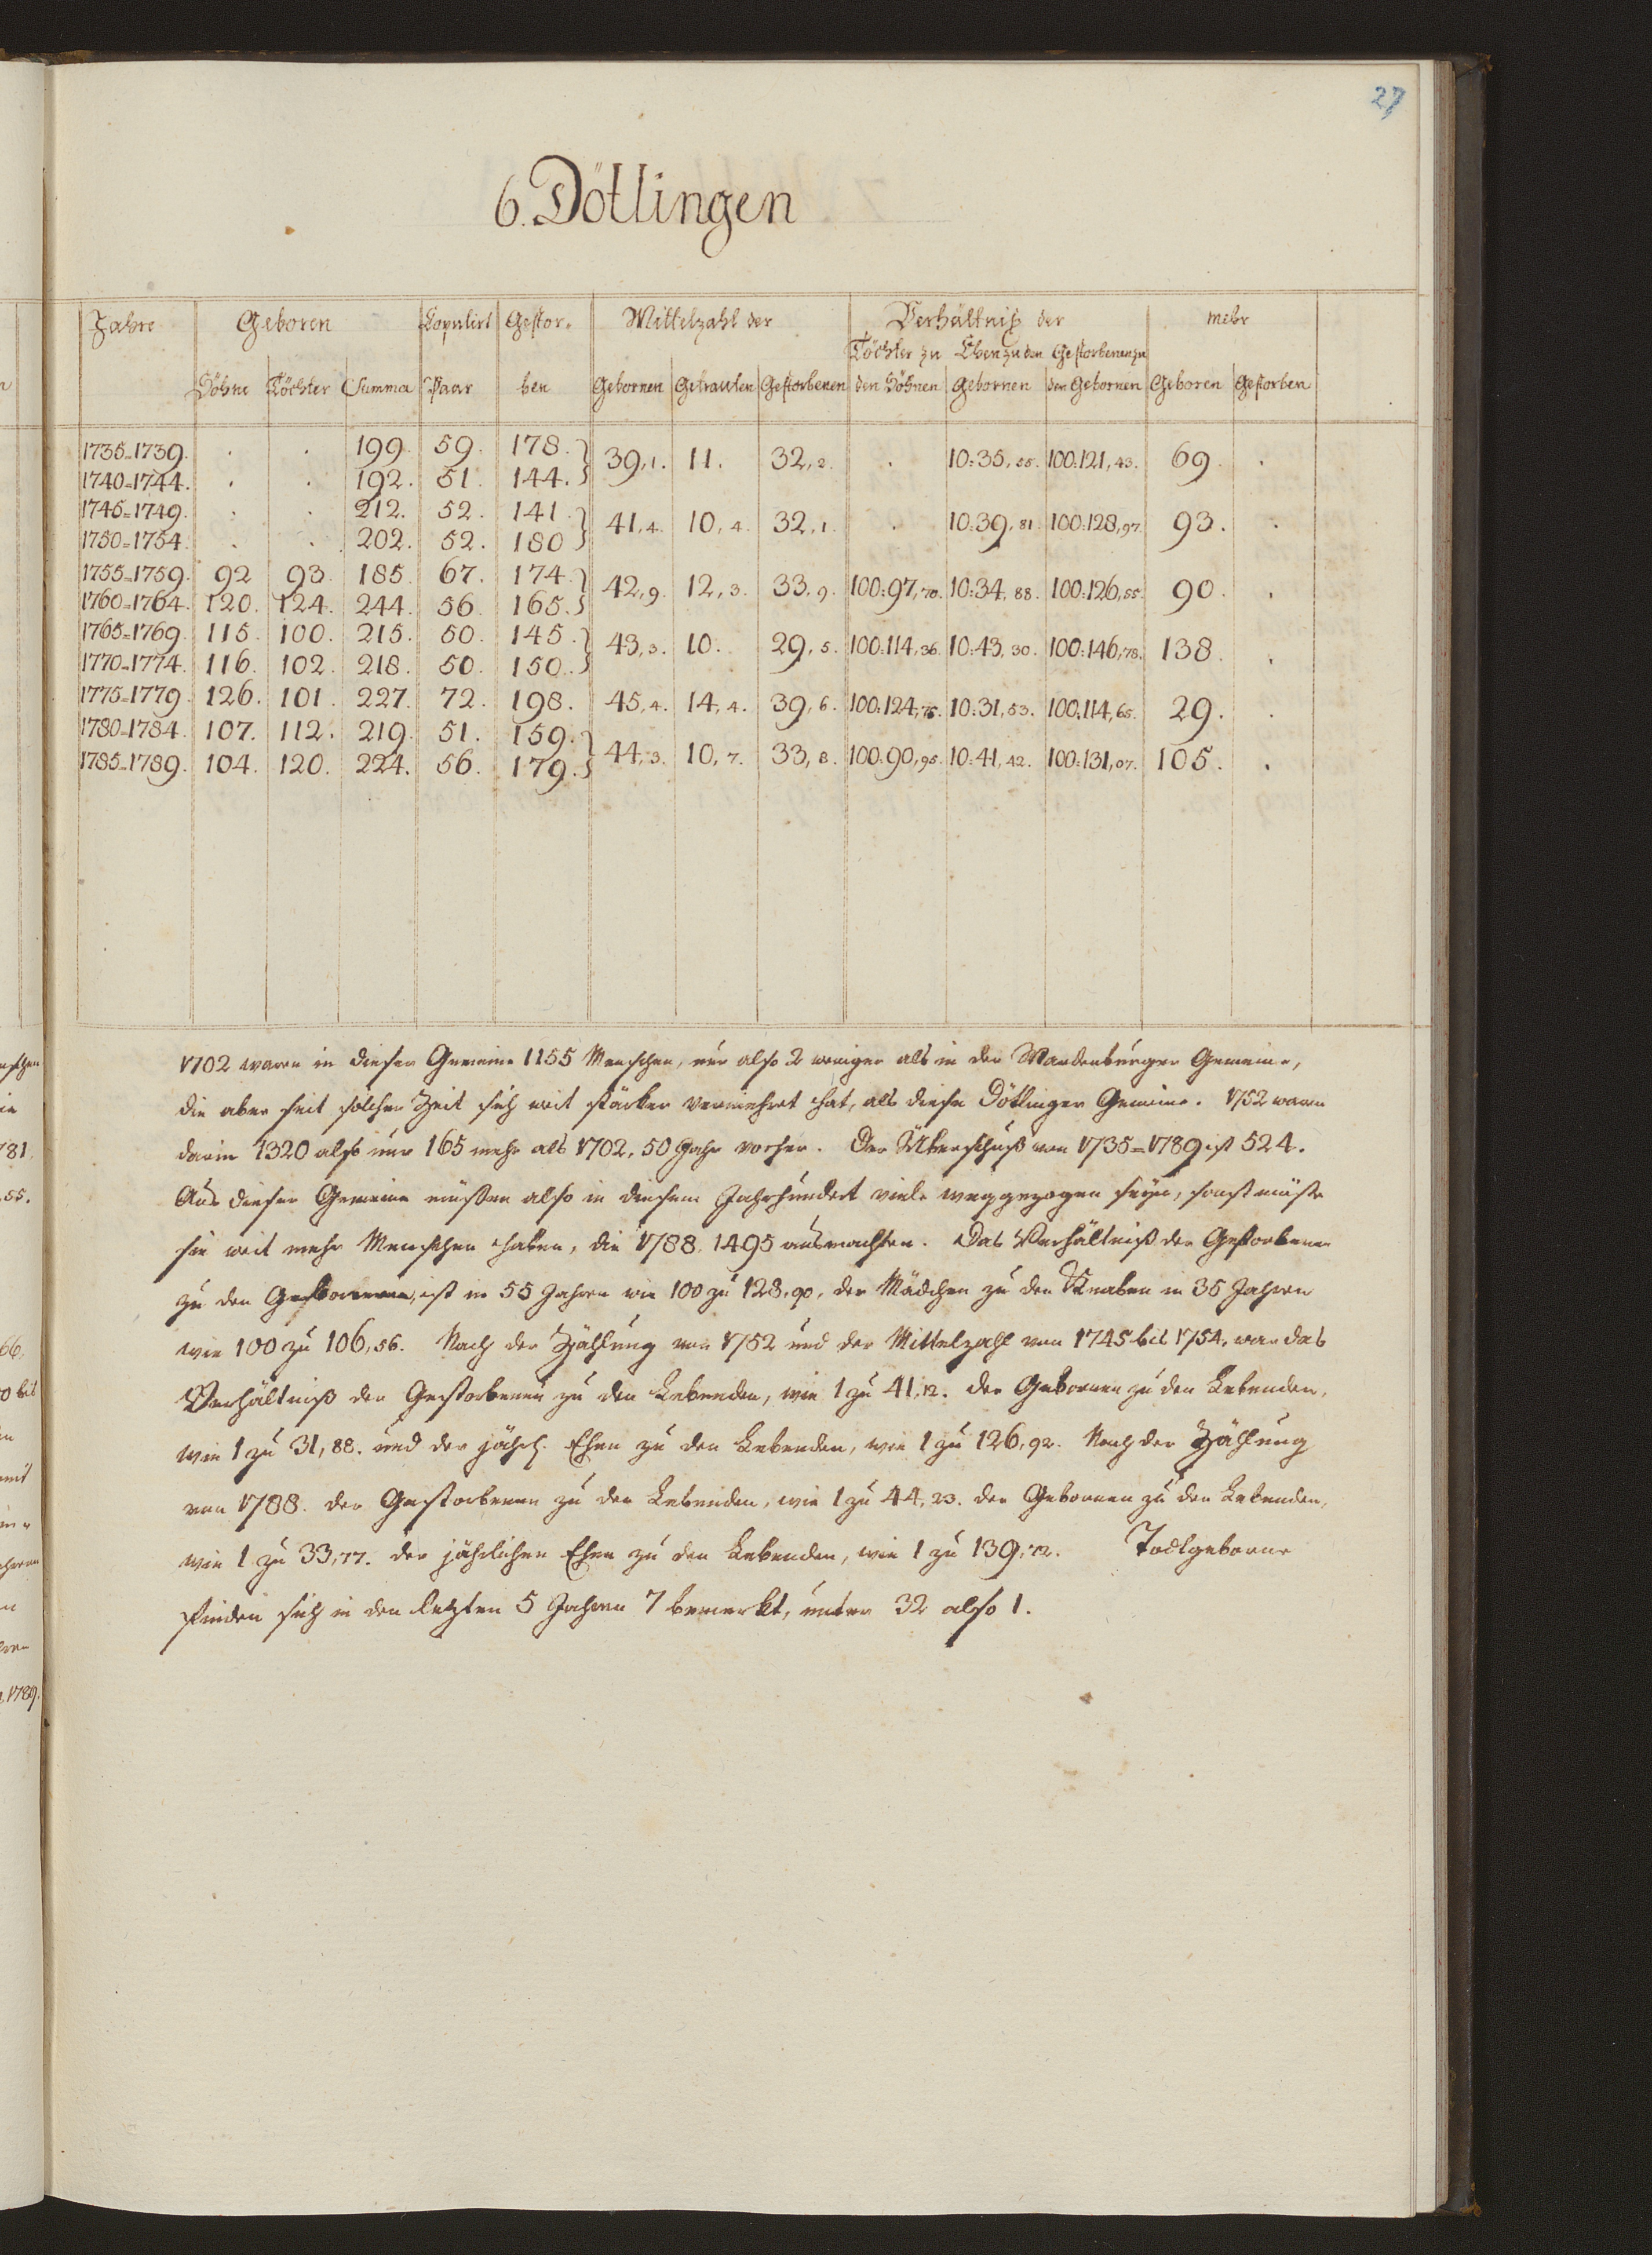 27
6. Dötlingen
Jahre Geboren Copulirt Gestor= Mittelzahl der Verhältniß der mehr
Töchter zu Ehen zu den Gestorbenen zu
Söhne Töchter Summa Paar ben Gebornen Getrauten Gestorbenen den Söhnen Gebornen den Gebornen Geboren Gestorben
1735=1739. . . 199. 59. 178.
39,1. 11. 32,2. . 10:35,55. 100:121,43. 69. .
1740=1744. . . 192. 51. 144.
1745=1749. . . 212. 52. 141.
41,4. 10,4. 32,1. . 10:39,81. 100:128,97. 93. .
1750=1754. . . 202. 52. 180
1755=1759. 92 93. 185. 67. 174.
42,9. 12,3. 33,9. 100:97,70. 10:34,88. 100:126,55. 90. .
1760=1764. 120. 124. 244. 56. 165.
1765=1769. 115. 100. 215. 50. 145.
43,3. 10. 29,5. 100:114,36. 10:43,30. 100:146,78. 138. .
1770=1774. 116. 102. 218. 50. 150.
1775=1779. 126. 101. 227. 72. 198. 45,4. 14,4. 39,6. 100:124,75. 10:31,53. 100:114,65. 29. .
1780=1784. 107. 112. 219. 51. 159.
44,3. 10,7. 33,8. 100:90,95. 10:41,42. 100:131,07. 105. .
1785=1789. 104. 120. 224. 56. 179.
1702 waren in dieser Gemeine 1155 Menschen, nur also 2 weniger als in der Wardenburger Gemeine,
die aber seit solcher Zeit sich weit stärker vermehret hat, als diese Dötlinger Gemeine. 1752 waren
darin 1320 also nur 165 mehr als 1702, 50 Jahr vorher. Der Überschuß von 1735=1789 ist 524.
Aus dieser Gemeine müßen also in diesem Jahrhundert viele weggezogen seyn, sonst müste
sie weit mehr Menschen haben, die 1788. 1495 ausmachten. Das Verhältniß der Gestorbenen
zu den Gebornen, ist in 55 Jahren wie 100 zu 128,90. der Mädchen zu den Knaben in 35 Jahren
wie 100 zu 106,56. Nach der Zählung von 1752 und der Mittelzahl von 1745 bis 1754. war das
Verhältniß der Gestorbenen zu den Lebenden, wie 1 zu 41,12. der Gebornen zu den Lebenden,
wie 1 zu 31,88. und der jährl. Ehen zu den Lebenden, wie 1 zu 126,92. Nach der Zählung
von 1788. der Gestorbenen zu den Lebenden, wie 1 zu 44,23. der Gebornen zu den Lebenden,
wie 1 zu 33,77. der jährlichen Ehen zu den Lebenden, wie 1 zu 139,72. Todtgeborne
finden sich in den letzten 5 Jahren 7 bemerkt, unter 32 also 1.